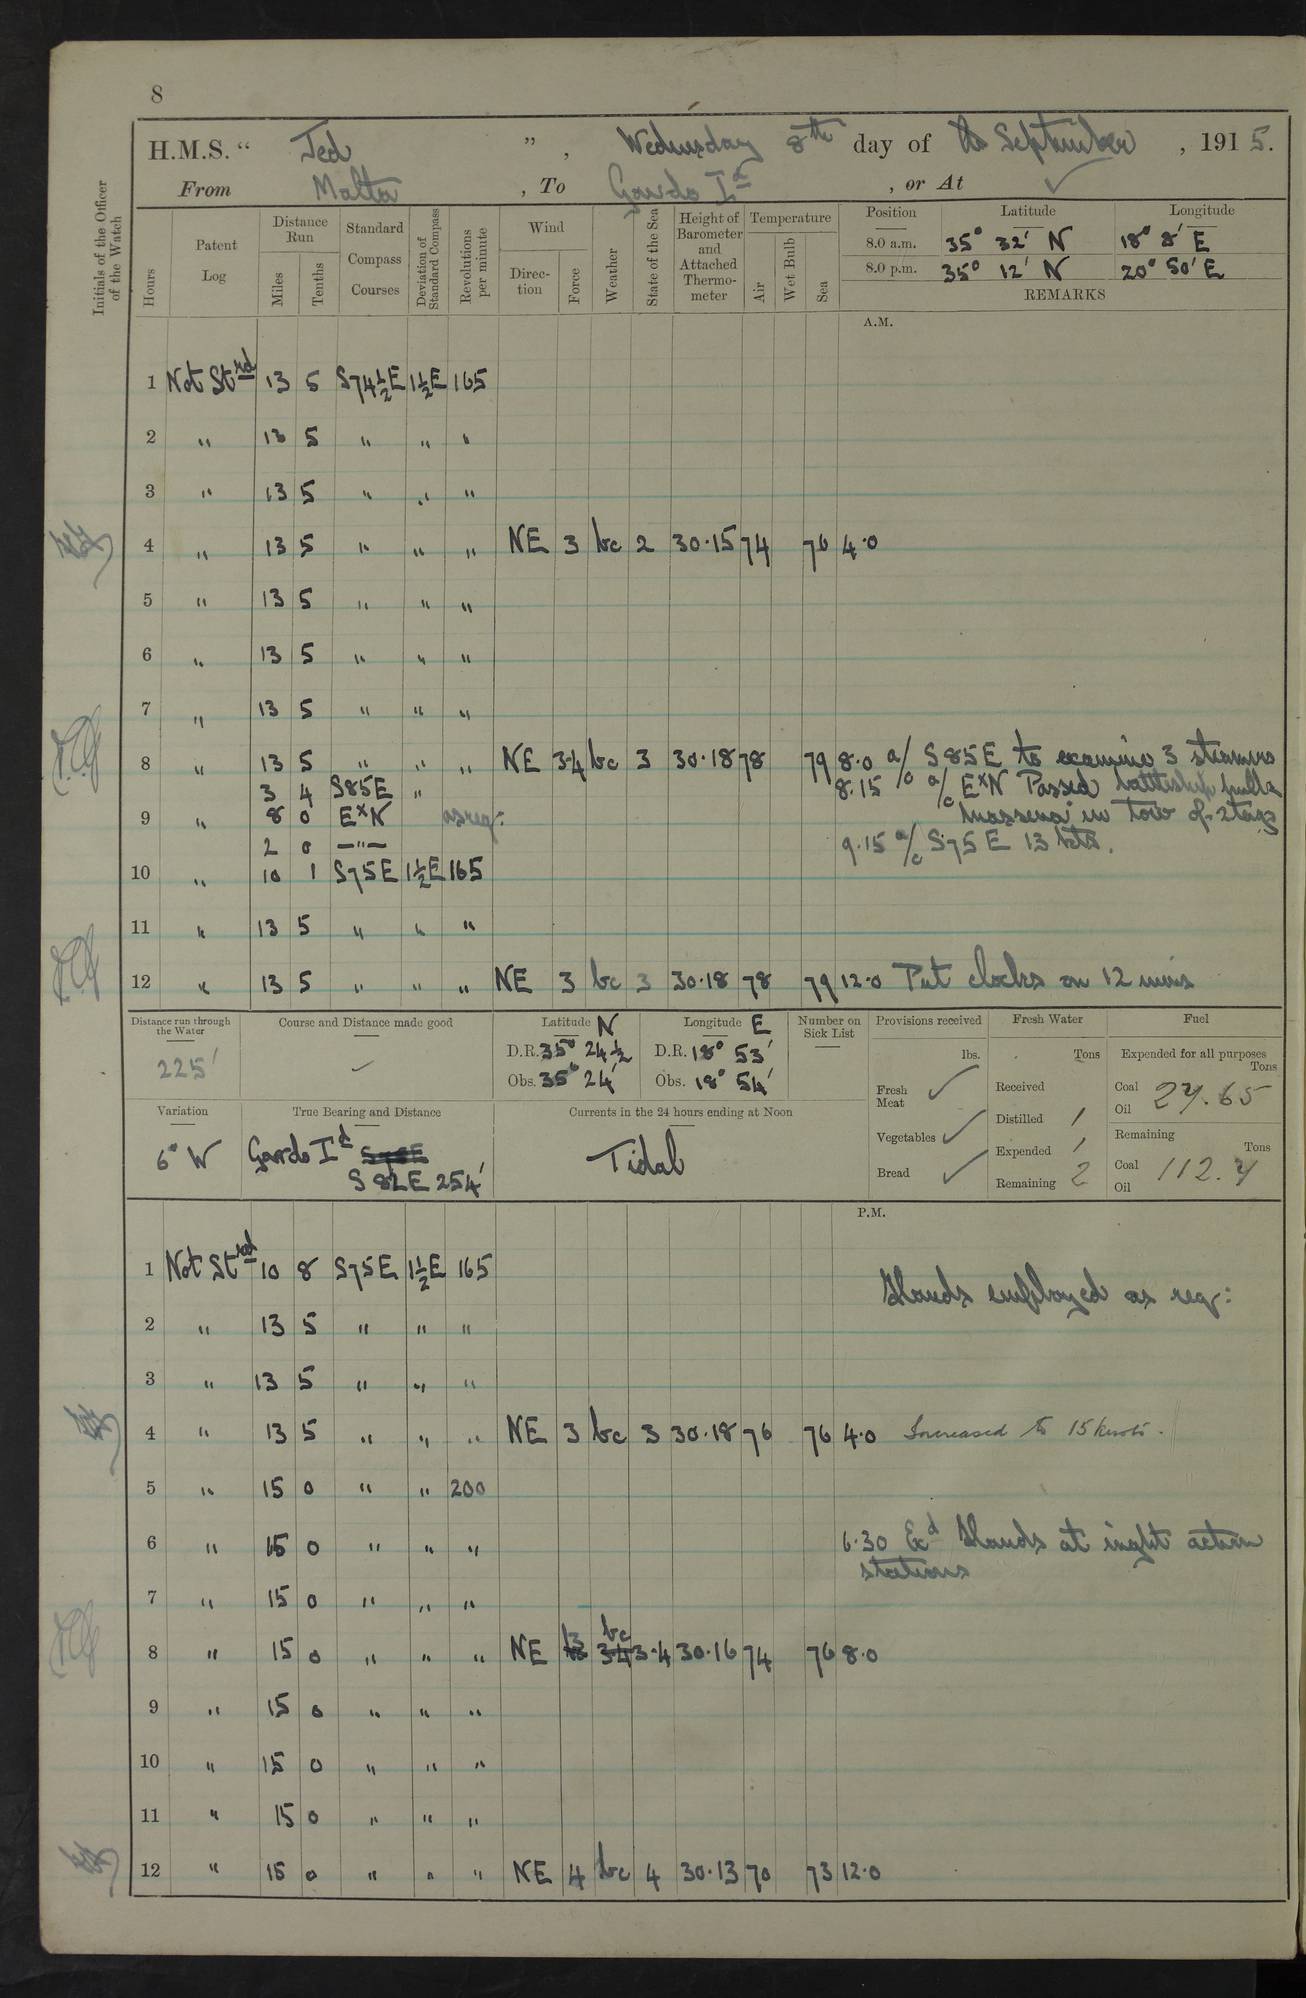 8
H.M.S. " Jed " , Wednesday 8th day of September , 1915.
From Malta , To Gavdo Id , or At ✓
Initials of the Officer of the Watch
Hours
Patent Log
Distance Run
Miles
Tenths
Standard Compass Courses
Deviation of Standard Compass
Revolutions per minute
Wind
Direction
Force
Weather
State of the Sea
Height of Barometer and Attached Thermometer
Temperature
Air
Wet Bulb
Sea
Position Latitude Longitude
8.0 a.m. 35° 32' N 18° 8' E
8.0 p.m. 35° 12' N 20° 50' E
REMARKS
A.M.
1 Not Strd 13 5 S74½E 1½E 165
2 " 13 5 " " "
3 " 13 5 " " "
4 " 13 5 " " " NE 3 bc 2 30.15 74 76 4.0
5 " 13 5 " " "
6 " 13 5 " " "
7 " 13 5 " " "
8 " 13 5 " " " NE 3.4 bc 3 30.18 78 79 8.0 a/c S85E to examine 3 steamers
3 4 S85E " 8.15 a/c E×N Passed battleship hulk
9 " 8 0 E×N as req: Massena in tow of 2 tugs
2 0 —"— 9.15 a/c S75E 13 kts.
10 " 10 1 S75E 1½E 165
11 " 13 5 " " "
12 " 13 5 " " " NE 3 bc 3 30.18 78 79 12.0 Put clocks on 12 mins
Distance run through the Water
225'
Course and Distance made good
✓
Latitude N
D.R. 35° 24½
Obs. 35° 24'
Longitude E
D.R. 18° 53'
Obs. 18° 54'
Number on Sick List
Provisions received
lbs.
Fresh Meat ✓
Vegetables ✓
Bread ✓
Fresh Water
Tons
Received
Distilled 1
Expended 1
Remaining 2
Fuel
Expended for all purposes
Tons
Coal
Oil 27.65
Remaining
Tons
Coal
Oil 112.7
Variation
6° W
True Bearing and Distance
Gavdo Id
S 82 E 254'
Currents in the 24 hours ending at Noon
Tidal
P.M.
1 Not Strd 10 8 S75E 1½E 165
Hands employed as req:
2 " 13 5 " " "
3 " 13 5 " " "
4 " 13 5 " " " NE 3 bc 3 30.18 76 76 4.0 Increased to 15 knots.
5 " 15 0 " " 200
6 " 15 0 " " " 6.30 Exd Hands at night action
stations
7 " 15 0 " " "
8 " 15 0 " " " NE 3 bc 3.4 30.16 74 76 8.0
9 " 15 0 " " "
10 " 15 0 " " "
11 " 15 0 " " "
12 " 15 0 " " " NE 4 bc 4 30.13 70 73 12.0